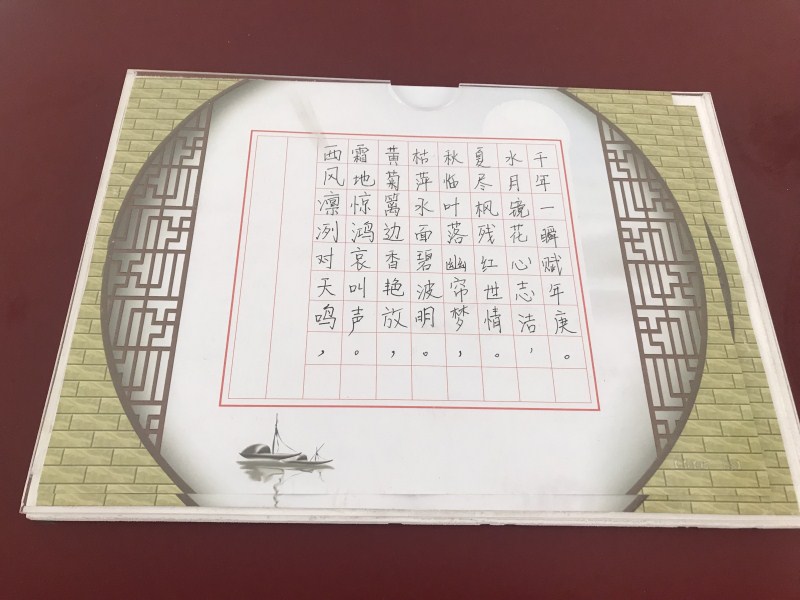 千年一瞬赋年庚。
水月镜花心志洁，
夏尽枫残红世情。
秋临叶落幽帘梦，
枯萍水面碧波明。
黄菊篱边香艳放，
霜地惊鸿哀叫声。
西风凛冽对天鸣，